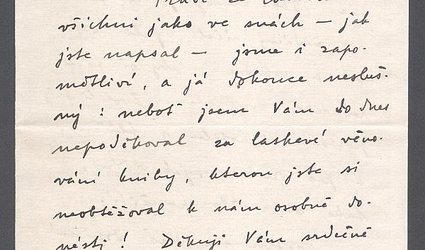 všichni jako ve snách – jak
jste napsal – jsme i zapo-
mětliví, a já dokonce nesluš-
ný: neboť jsem Vám do dnes
nepoděkoval za laskavé věno-
vání knihy, kterou jste si
neobtěžoval k nám osobně do-
nésti! Děkuji Vám srdečně